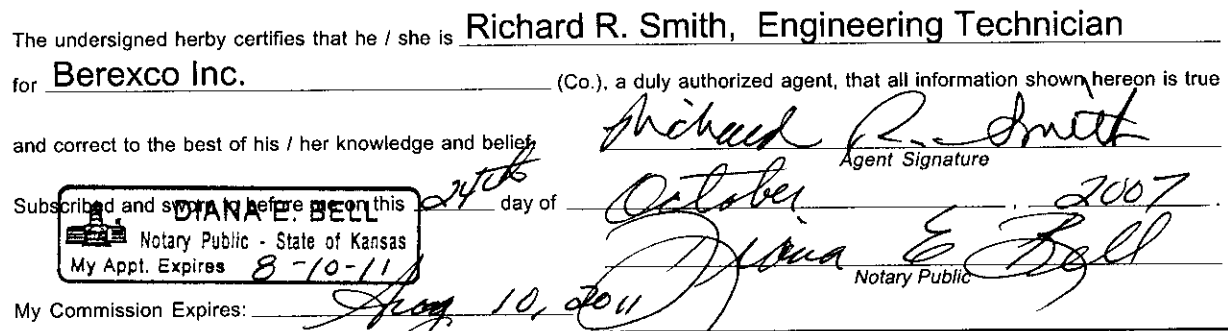 The undersigned herby certifies that he / she is Richard R. Smith, Engineering Technician
for Berexco Inc. (Co.), a duly authorized agent, that all information shown hereon is true
and correct to the best of his / her knowledge and belief.
Richard R. Smith
Agent Signature
Subscribed and sworn to before me on this 24th day of October, 2007.
DIANA E. BELL
Notary Public - State of Kansas
My Appt. Expires 8-10-11
Diana E Bell
Notary Public
My Commission Expires: Aug 10, 2011